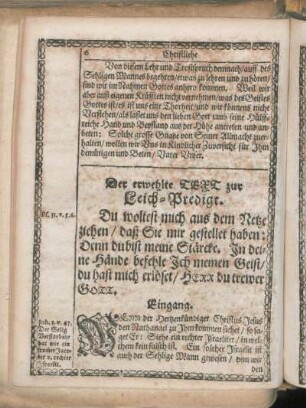 6 Christliche
Von diesem Lehr und Trostspruch demnach / auff des
Sehligen Mannes begehren / etwas zu lehren und zu hören /
sind wir im Nahmen Gottes anhero kommen. Weil wir
aber auß eigenen Kräfften nicht vernehmen / was des Geistes
Gottes ist / es ist uns eine Thorheit / und wir könnens nicht
verstehen / als lasset uns den lieben Gott umb seine Hülff-
reiche Hand und Beystand aus der Höhe anrufen und an-
beten: Solche grosse Gnade von Seiner Allmacht zuer-
halten / wollen wir Uns in Kindlicher Zuversicht für Ihm
demütigen und Beten / Vater Unser.
Der erwehlte TEXT zur
Leich-Predigt.
Ps. 31. v. 5. 6.
Du woltest mich aus dem Netze
ziehen / daß Sie mir gestellet haben:
Denn du bist meine Stärcke. In dei-
ne Hände befehle Ich meinen Geist /
du hast mich erlöset / HErr du trewer
GOtt.
Eingang.
Joh. 1. v. 47.
Der Selig
Verstorbene
war wie ein
frommer Jacob
der v. rechter
Israelit.
WEnn der Hertzenkündiger Christus Jesus
den Nathanael zu Ihm kommen siehet / so sa-
get Er: Siehe ein rechter Israeliter / in wel-
chem kein falsch ist. Ein solcher Israelit ist
auch der Sehlige Mann gewesen / von wir
den